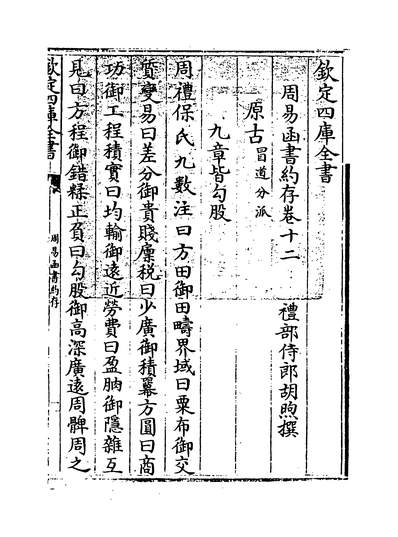 欽定四庫全書
周易函書約存卷十二
禮部侍郎胡煦撰
原古冒道分派
九章皆勾股
周禮保氏九數注曰方田御田疇界域曰粟布御交
質變易曰差分御貴賤廩税曰少廣御積羃方圓曰商
功御工程積實曰均輸御遠近勞費曰盈朒御隱雜互
見曰方程御錯糅正負曰勾股御高深廣遠周髀周之
欽定四庫全書
周易函書約存
一